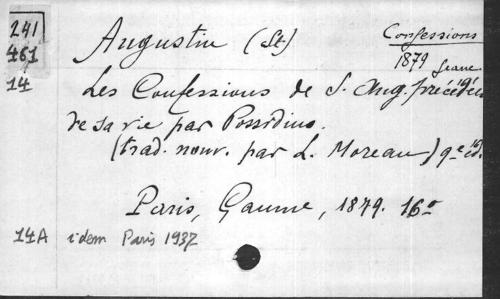 241
461
14
Augustin (St)
Confessions
1879
Les Confessions de S. Aug. précédées
de sa vie par Possidius.
(trad. nouv. par L. Moreau) 9e éd.
Paris, Gaume, 1879. 16°
14A idem Paris 1937